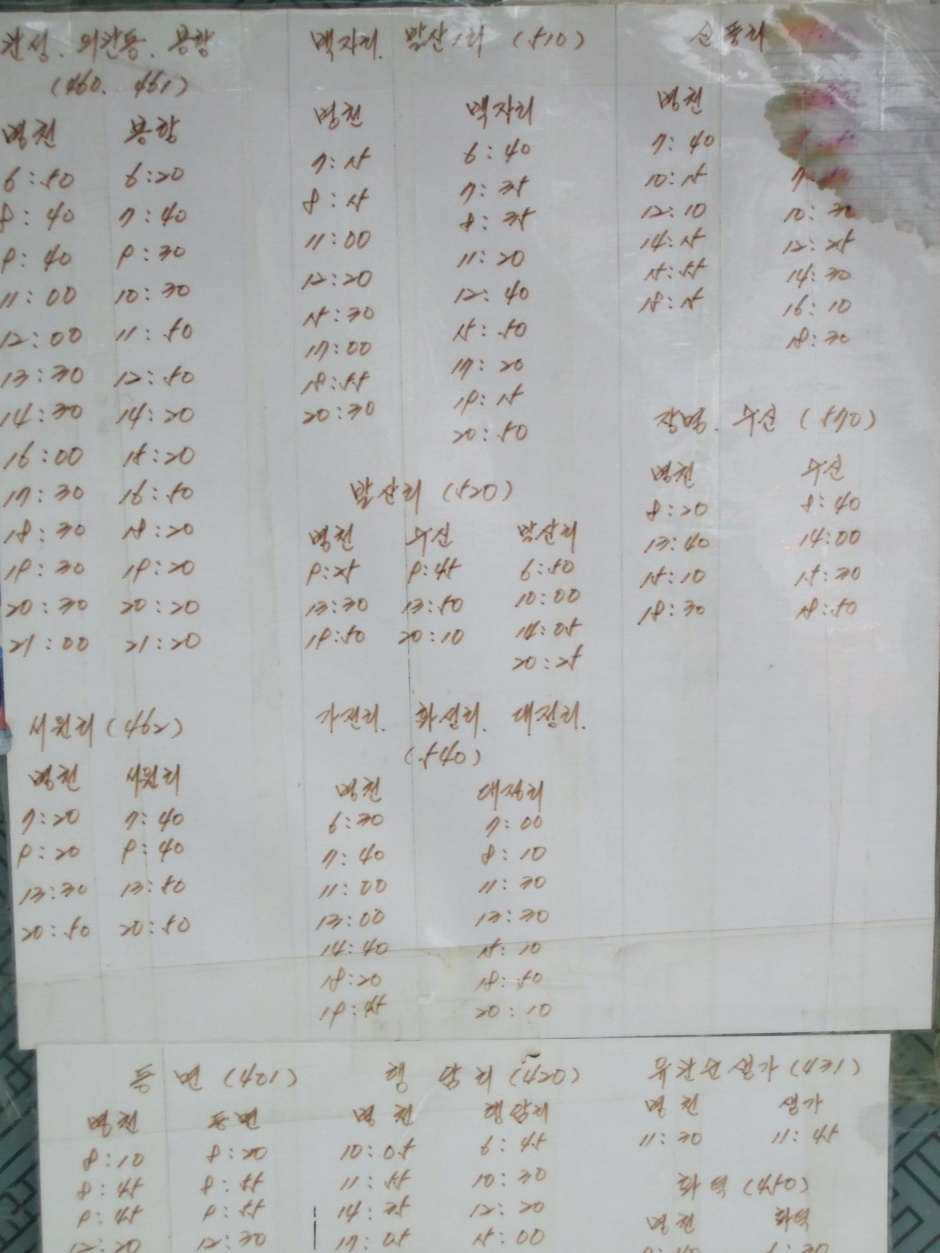 관성. 외관동. 용암
(460. 461)
병천 용암
6:50 6:20
8:40 7:40
9:40 9:30
11:00 10:30
12:00 11:50
13:30 12:50
14:30 14:20
16:00 15:20
17:30 16:50
18:30 18:20
19:30 19:20
20:30 20:20
21:00 21:20
서원리 (462)
병천 서원리
7:20 7:40
9:20 9:40
13:30 13:50
20:50 20:50
백자리. 발산1리 (510)
병천 백자리
7:15 6:40
8:15 7:35
11:00 8:35
12:20 11:20
15:30 12:40
17:00 15:50
18:55 17:20
20:30 19:15
20:50
발산리 (520)
병천 수신 발산리
9:25 9:45 6:50
13:30 13:50 10:00
19:50 20:10 14:05
20:25
가전리. 화성리. 대정리.
(540)
병천 대정리
6:30 7:00
7:40 8:10
11:00 11:30
13:00 13:30
14:40 15:10
18:20 18:50
19:45 20:10
병천
7:40
10:15
12:10 10:30
14:15 12:25
15:55 14:30
18:15 16:10
18:30
장명. 수신 (570)
병천 수신
8:20 8:40
13:40 14:00
15:10 15:30
18:30 18:50
동면 (401)
병천 동면
8:10 8:20
8:45 8:55
9:45 9:55
12:20 12:30
행암리 (420)
병천 행암리
10:05 6:45
11:55 10:30
14:35 12:20
17:05 15:00
유관순생가 (431)
병천 생가
11:30 11:45
화덕 (450)
병천 화덕